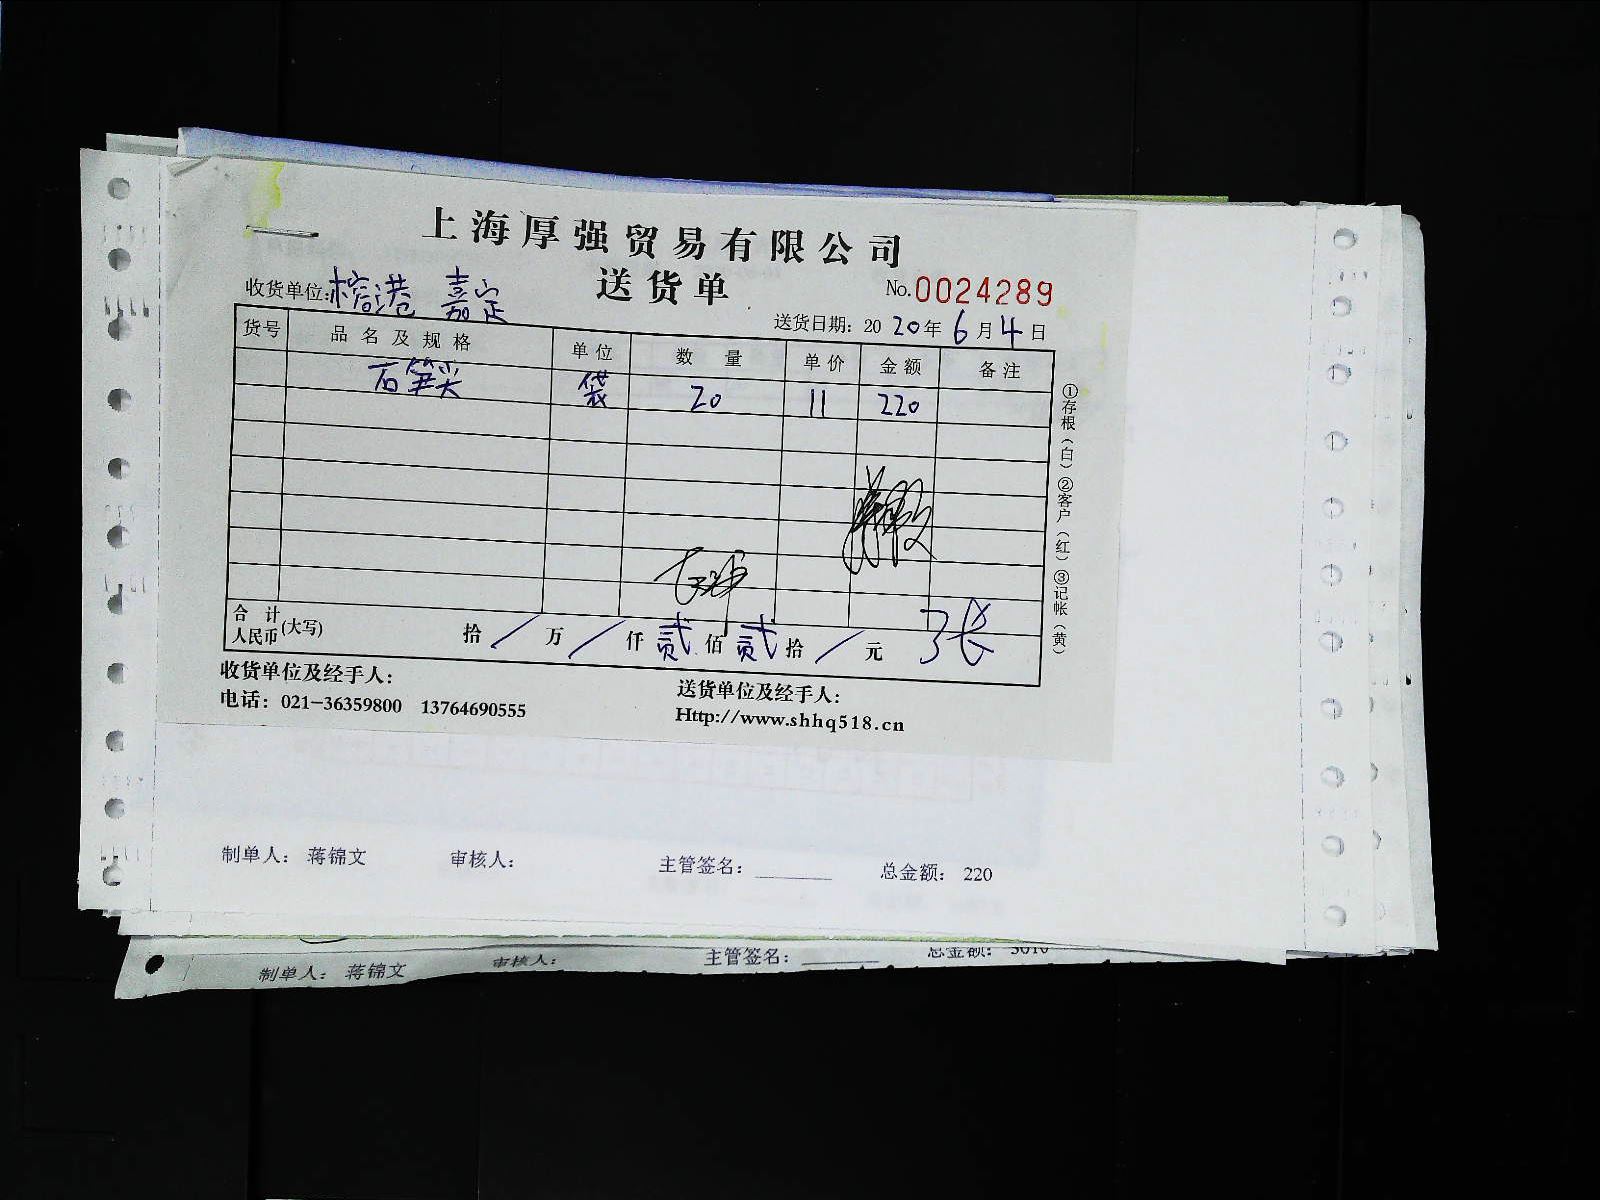 上海厚强贸易有限公司
送货单
收货单位:榕港 嘉定
No.0024289
送货日期: 2020年6月4日
货号 品名及规格 单位 数量 单价 金额 备注
石笋尖 袋 20 11 220
①存根(白)②客户(红)③记帐(黄)
合计人民币(大写) 拾/万/仟贰佰贰拾/元 3张
收货单位及经手人:
送货单位及经手人:
电话: 021-36359800 13764690555
Http://www.shhq518.cn
制单人: 蒋锦文 审核人: 主管签名:________ 总金额: 220
制单人: 蒋锦文 审核人: 主管签名:________ 总金额: 3010